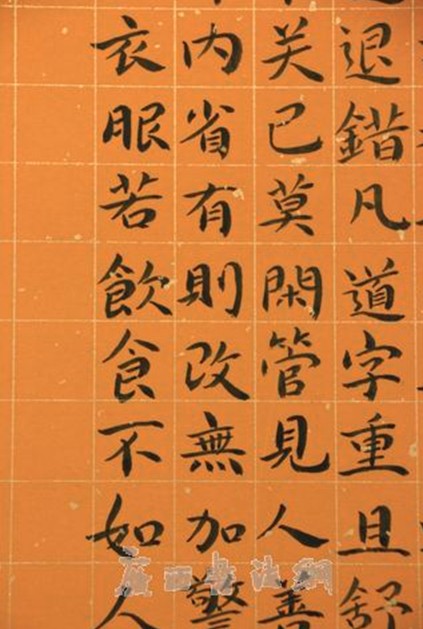 退錯凡道字重且舒
关已莫閑管見人善
内省有則改無加警
衣服若飲食不如人
广西书法网